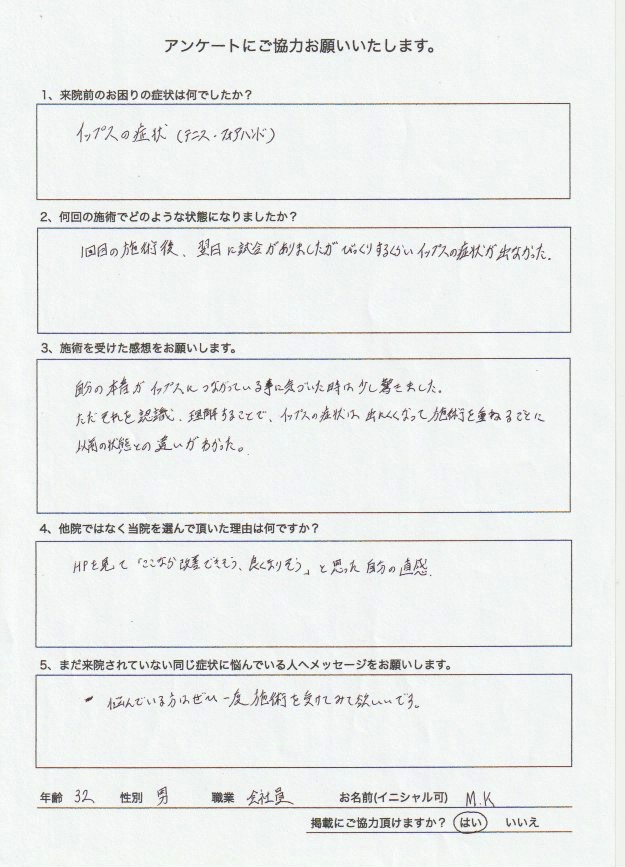 アンケートにご協力お願いいたします。
1、来院前のお困りの症状は何でしたか?
イップスの症状(テニス・フォアハンド)
2、何回の施術でどのような状態になりましたか?
1回目の施術後、翌日に試合がありましたがびっくりするくらいイップスの症状が出なかった。
3、施術を受けた感想をお願いします。
自分の本音がイップスにつながっている事に気づいた時は少し驚きました。
ただそれを認識、理解することで、イップスの症状は出にくくなって施術を重ねるごとに
以前の状態との違いがわかった。
4、他院ではなく当院を選んで頂いた理由は何ですか?
HPを見て「ここなら改善できそう、良くなりそう」と思った自分の直感。
5、まだ来院されていない同じ症状に悩んでいる人へメッセージをお願いします。
悩んでいる方はぜひ一度施術を受けてみて欲しいです。
年齢 32 性別 男 職業 会社員 お名前(イニシャル可) M.K
掲載にご協力頂けますか? はい いいえ